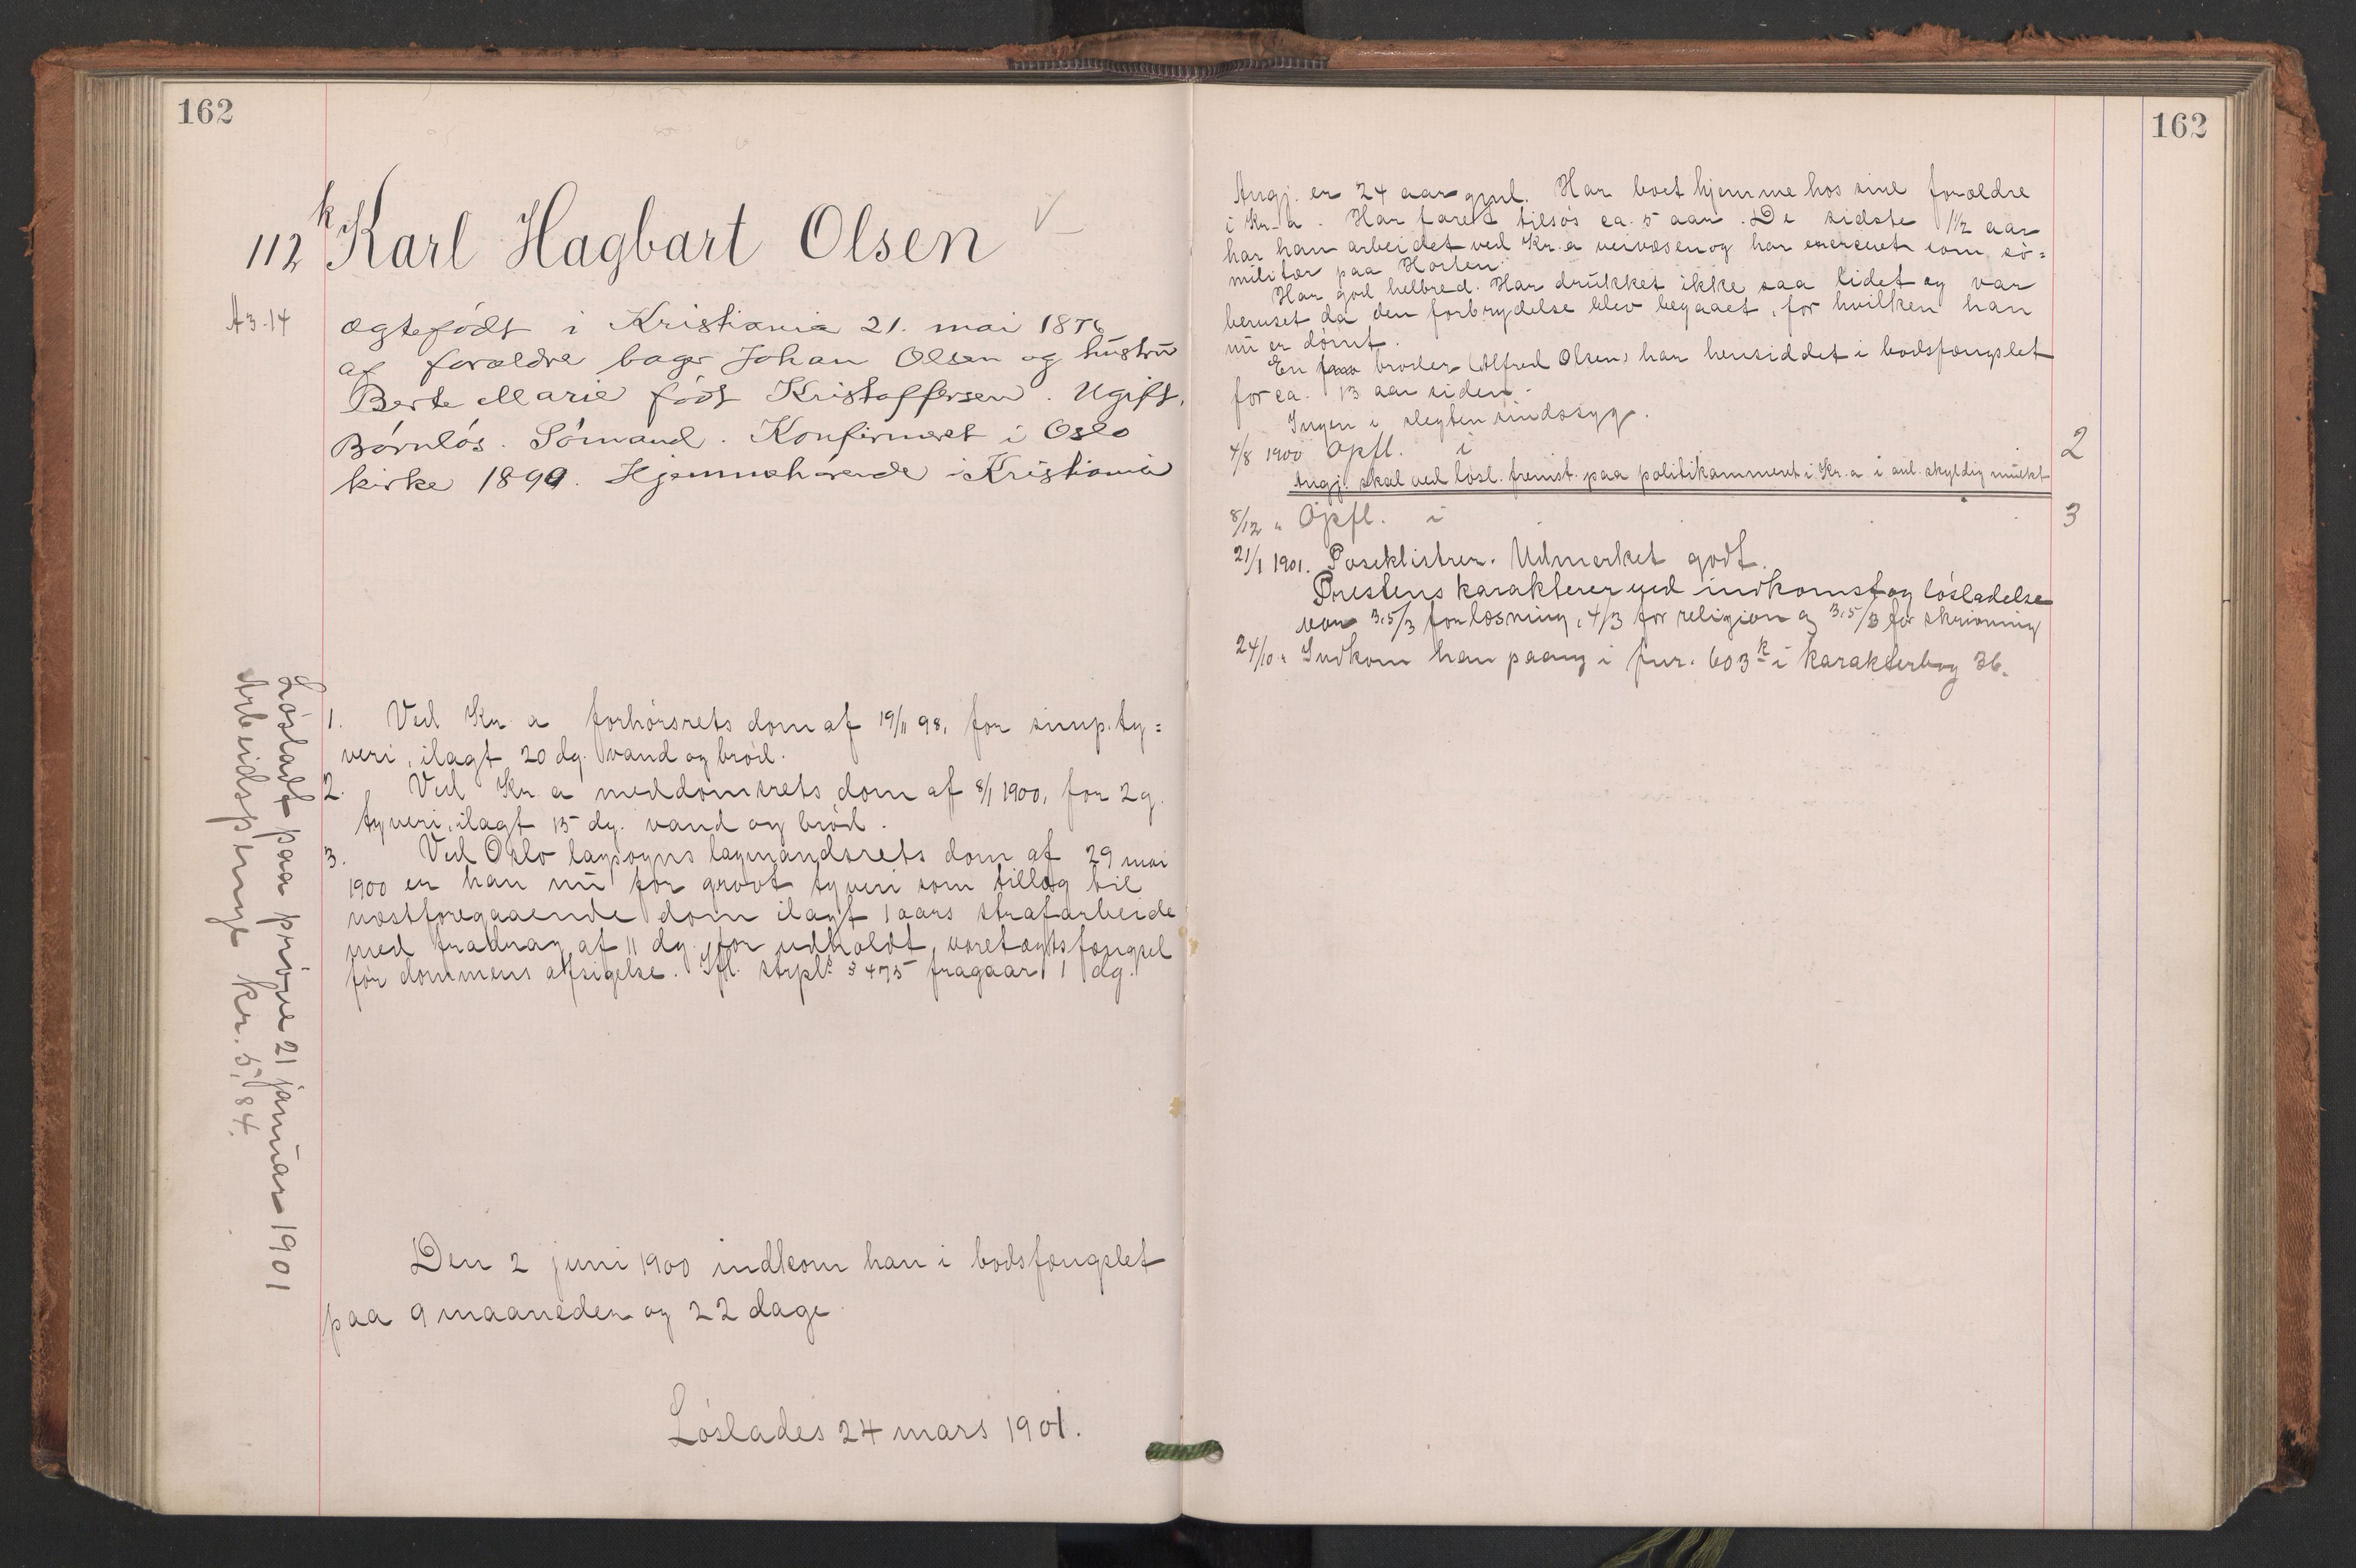 162
112 k Karl Hagbart Olsen
A3.14
ægtefødt i Kristiania 21. mai 1876
af forældre bager Johan Olsen og hustru
Berte Marie født Kristoffersen. Ugift.
Barnløs. Sømand. Konfirmeret i Oslo
kirke 1890. Hjemmehørende i Kristiania
1. Ved Kr.a forhørsrets dom af 19/11 98, for simp. ty=
veri, ilagt 20 dg. vand og brød.
2. Ved Kr.a meddomsrets dom af 8/1 1900, for 2 g.
tyveri, ilagt 15 dg. vand og brød.
3. Ved Oslo lagsogns lagmandsrets dom af 29 mai
1900 er han nu for grovt tyveri som tillæg til
næstforegaaende dom ilagt 1 aars strafarbeide
med fradrag af 11 dg. for udholdt varetægtsfængsel
før dommens afsigelse. Ifl. strpl. § 475 fragaar 1 dg.
Løsladt paa prøve 21 januar 1901
Arbeidspenge kr. 5,84.
Den 2 juni 1900 indkom han i bodsfængslet
paa 9 maaneder og 22 dage
Løslades 24 mars 1901.
162
Angj. er 24 aar gml. Har boet hjemme hos sine forældre
i Kr.a. Har faret tilsøs ca. 5 aar. De sidste 1½ aar
har han arbeidet ved Kr.a veivæsen og har exerceret som sø=
militær paa Horten.
Har god helbred. Har drukket ikke saa lidet og var
beruset da den forbrydelse blev begaaet, for hvilken han
nu er dømt.
En broder (Alfred Olsen) har hensiddet i bodsfængslet
for ca. 13 aar siden.
Ingen i slegten sindssyg.
4/8 1900 Opfl. i 2
Angj. skal ved løsl. fremst. paa politikammeret i Kr.a i anl. skyldig mulkt
8/12 " Opfl. i 3
21/1 1901. Poseklistrer. Udmerket godt.
Prestens karakterer ved indkomst og løsladelse
var 3,5/3 for læsning, 4/3 for religion og 3,5/3 for skrivning
24/10 " Indkom han paany i fnr. 603 k i karakterbog 36.